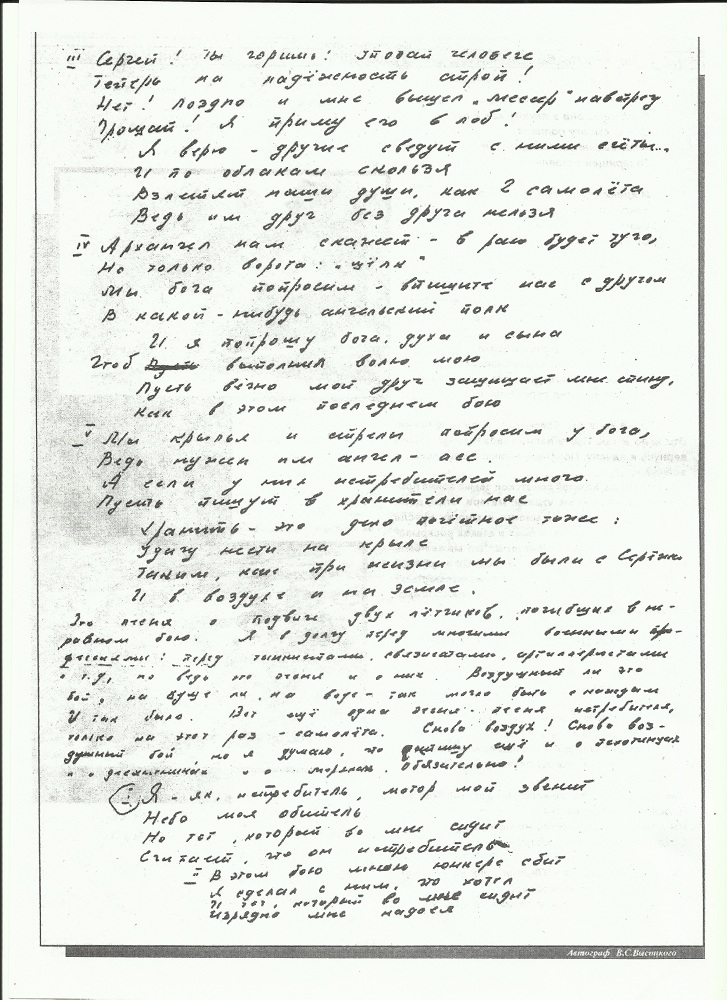 III Сергей! Ты горишь! Уповай человече
Теперь на надёжность строп!
Нет! Поздно и мне вышел „мессер" навстречу
Прощай! Я приму его в лоб!
Я верю - другие сведут с ними счёты...
И по облакам скользя
Взлетят наши души, как 2 самолёта
Ведь им друг без друга нельзя
IV Архангел нам скажет - в раю будет туго,
Но только ворота: „щёлк"
Мы бога попросим - впишите нас с другом
В какой-нибудь ангельский полк
И я попрошу бога, духа и сына
Чтоб выполнил волю мою
Пусть вечно мой друг защищает мне спину,
Как в этом последнем бою
V Мы крылья и стрелы попросим у бога,
Ведь нужен им ангел-асс.
А если у них истребителей много.
Пусть пишут в хранители нас
Хранить - это дело почётное тоже:
Удачу нести на крыле
Таким, как при жизни мы были с Серёжей
И в воздухе и на земле.
Это песня о подвиге двух лётчиков, погибших в не-
равном бою. Я в долгу перед многими военными про-
фессиями: перед танкистами, связистами, артиллеристами
и т.д., но ведь это песня и о них. Воздушный ли это
бой, на суше ли, на воде - так могло быть с каждым
И так было. Вот ещё одна песня - песня истребителя,
только на этот раз - самолёта. Снова воздух! Снова воз-
душный бой, но я думаю, что напишу ещё и о пехотинцах
и о десантниках и о моряках. Обязательно!
I Я - як, истребитель, мотор мой звенит
Небо моя обитель
Но тот, который во мне сидит
Считает, что он истребитель
II В этом бою мною юнкерс сбит
Я сделал с ним, что хотел
И тот, который во мне сидит
Изрядно мне надоел
Автограф В.С.Высоцкого